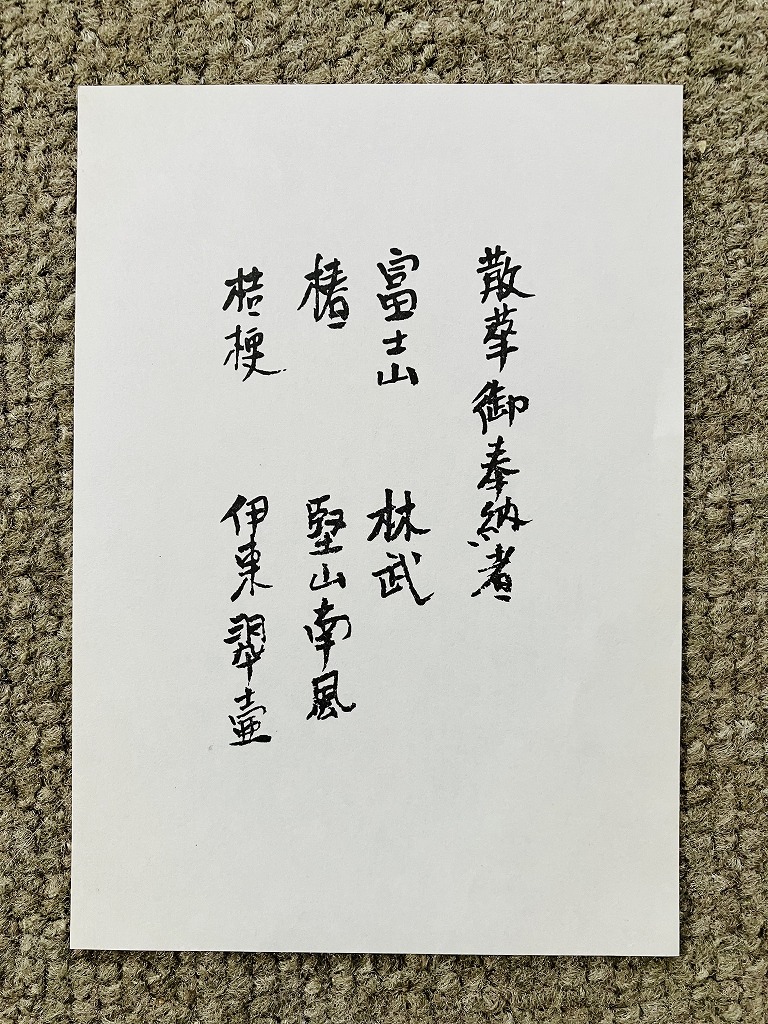 散華御奉納者
富士山 林武
椿 堅山南風
桔梗 伊東翠壷